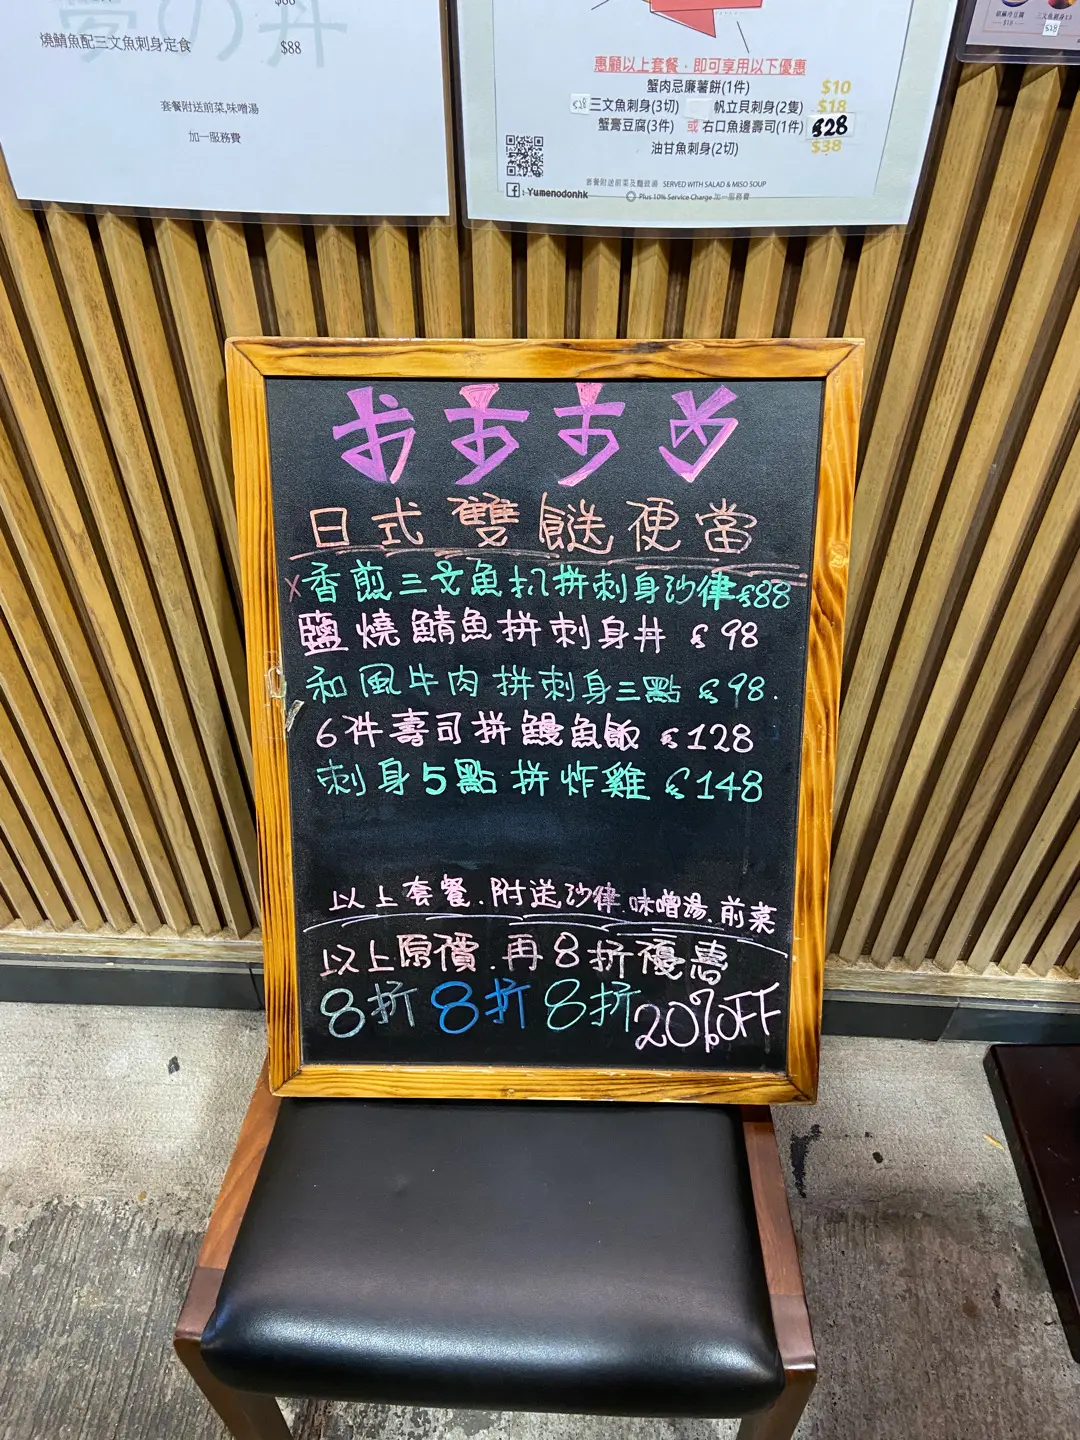 夢の丼
$88
燒鯖魚配三文魚刺身定食
套餐附送前菜,味噌湯
加一服務費
惠顧以上套餐,即可享用以下優惠
蟹肉忌廉薯餅(1件) $10
$28 三文魚刺身(3切) 帆立貝刺身(2隻) $18
蟹膏豆腐(3件) 或 右口魚邊壽司(1件) $28
油甘魚刺身(2切) $38
套餐附送前菜及麵豉湯 SERVED WITH SALAD & MISO SOUP
f : Yumenodonhk
Plus 10% Service Charge 加一服務費
$18
$28
日式雙餸便當
x香煎三文魚扒拼刺身沙律$88
鹽燒鯖魚拼刺身丼 $98
和風牛肉拼刺身三點 $98.
6件壽司拼鰻魚飯 $128
刺身5點拼炸雞 $148
以上套餐.附送沙律.味噌湯.前菜
以上原價.再8折優惠
8折 8折 8折 20%OFF